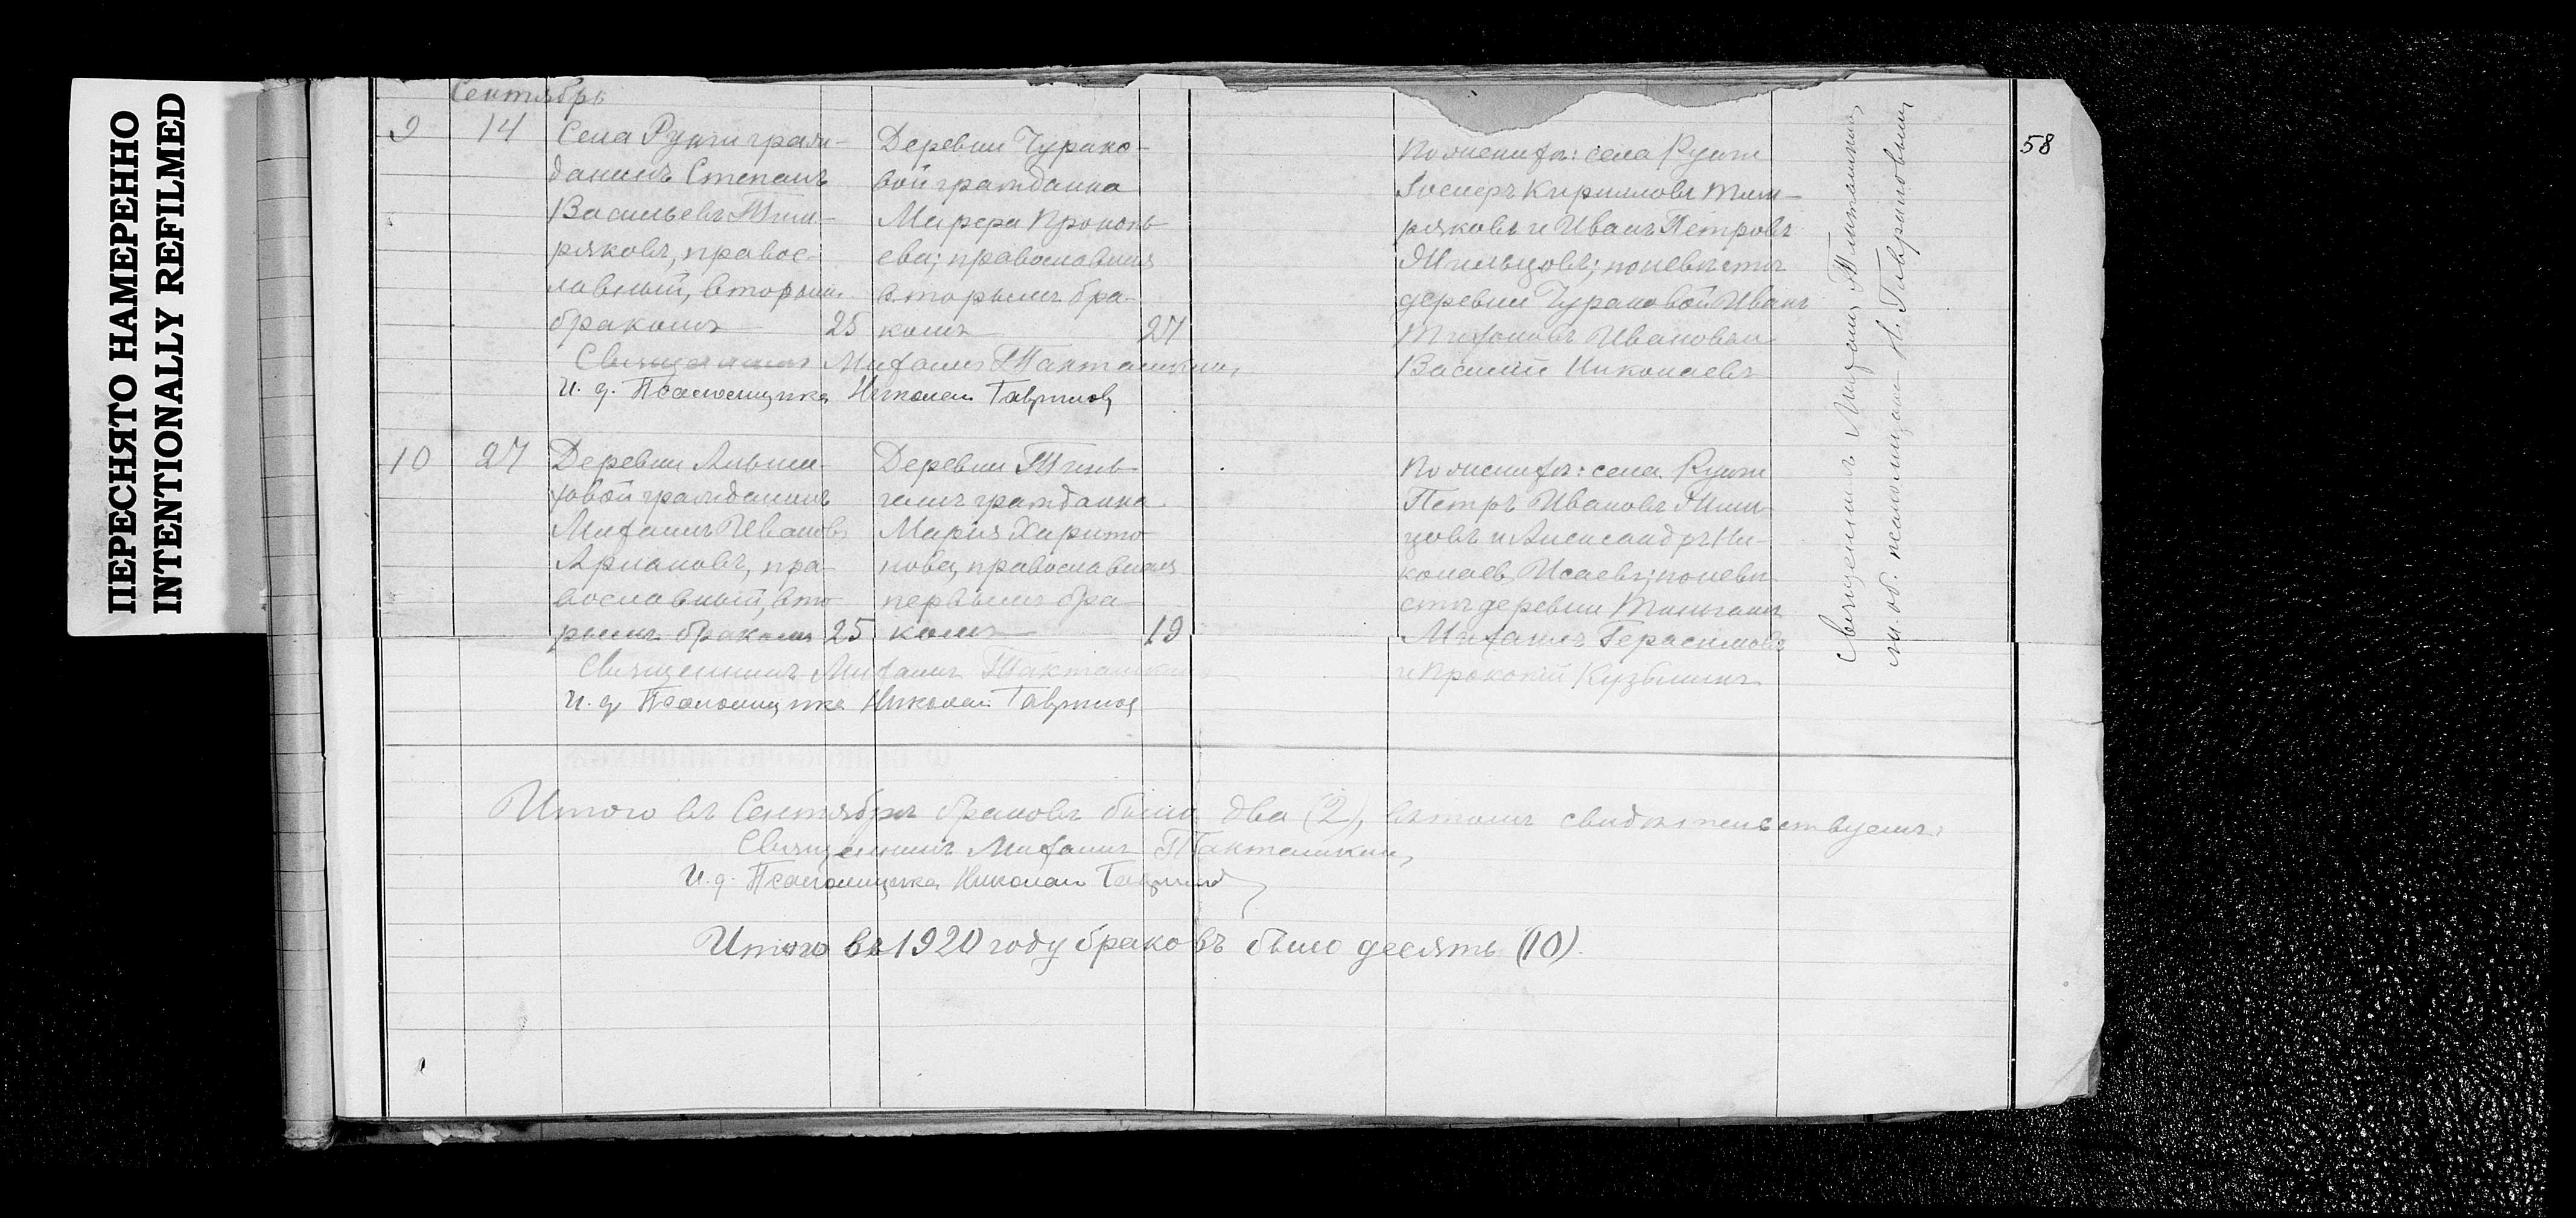 ПЕРЕСНЯТО НАМЕРЕННО
INTENTIONALLY REFILMED
58
Сентябрь
9
14
Села Рунги граж-
данинъ Степанъ
Васильевъ
ряковъ, правос-
лавный, вторымъ
бракомъ
25
Деревни Чурако-
вой гражданка
Марфа Прокопь
ева; православная
вторымъ бра-
комъ
27
По женихѣ: села Рунги
Кирилловъ
ряковъ и Иванъ Петровъ
по невѣстѣ
деревни Чураковой Иванъ
Ивановъ и
Василій Николаевъ
Священникъ Михаилъ Такташкин,
И. д. Псаломщика Николай Гаврилов
10
27
Деревни
ховой гражданинъ
Михаилъ Ивановъ
пра-
вославный, вто
рымъ бракомъ
25
Деревни
гашъ гражданка
Марія Харито
нова, православная
первымъ бра-
комъ
19
По женихѣ: села Рунги
Петръ Ивановъ
цовъ и Александръ Ни-
колаев Исаевъ; по невѣ
стѣ деревни
Михаилъ Герасимовъ
и Прокопій Кузьминъ
Священникъ Михаилъ Такташкин
И. д. Псаломщика Николай Гаврилов
Священникъ Михаилъ Такташкин
и. об. псаломщика Н. Гавриловъ
Итого въ Сентябрѣ браковъ было два (2), въ томъ свидѣтельствуемъ:
Священникъ Михаилъ Такташкин,
И. д. Псаломщика Николай Гаврилов
Итого въ 1920 году браковъ было десять (10).